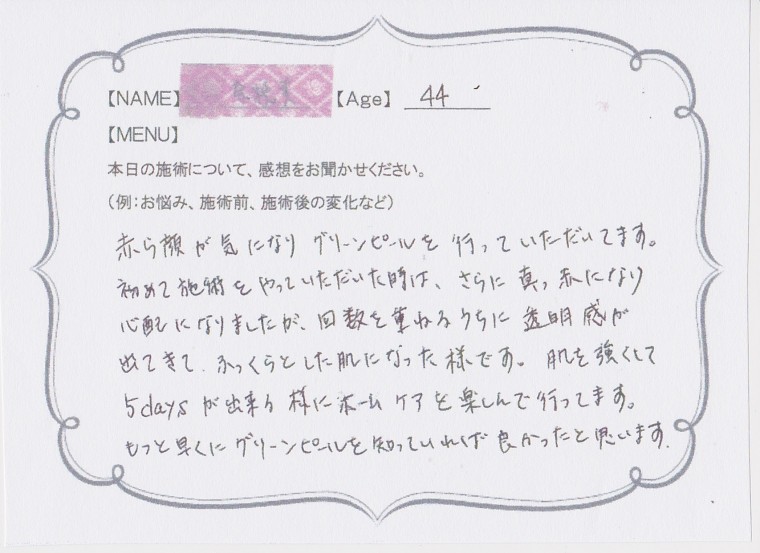 【NAME】 【Age】 44
【MENU】
本日の施術について、感想をお聞かせください。
(例:お悩み、施術前、施術後の変化など)
赤ら顔が気になり グリーンピールを 行っていただいてます。
初めて施術をやっていただいた時は、さらに真っ赤になり
心配になりましたが、回数を重ねるうちに 透明感が
出てきて、ふっくらとした肌になった様です。 肌を強くして
5daysが出来る様にホームケアを楽しんで行ってます。
もっと早くにグリーンピールを知っていれば良かったと思います。